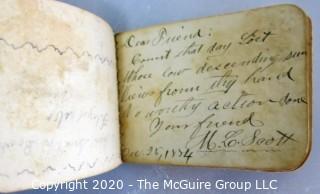 Dear Friend:
Count that day Lost
Whose low descending sun
Views from thy hand
No worthy action done
Your friend
M. C. Scott
Dec 25, 1884
Copyright © 2020 - The McGuire Group, LLC